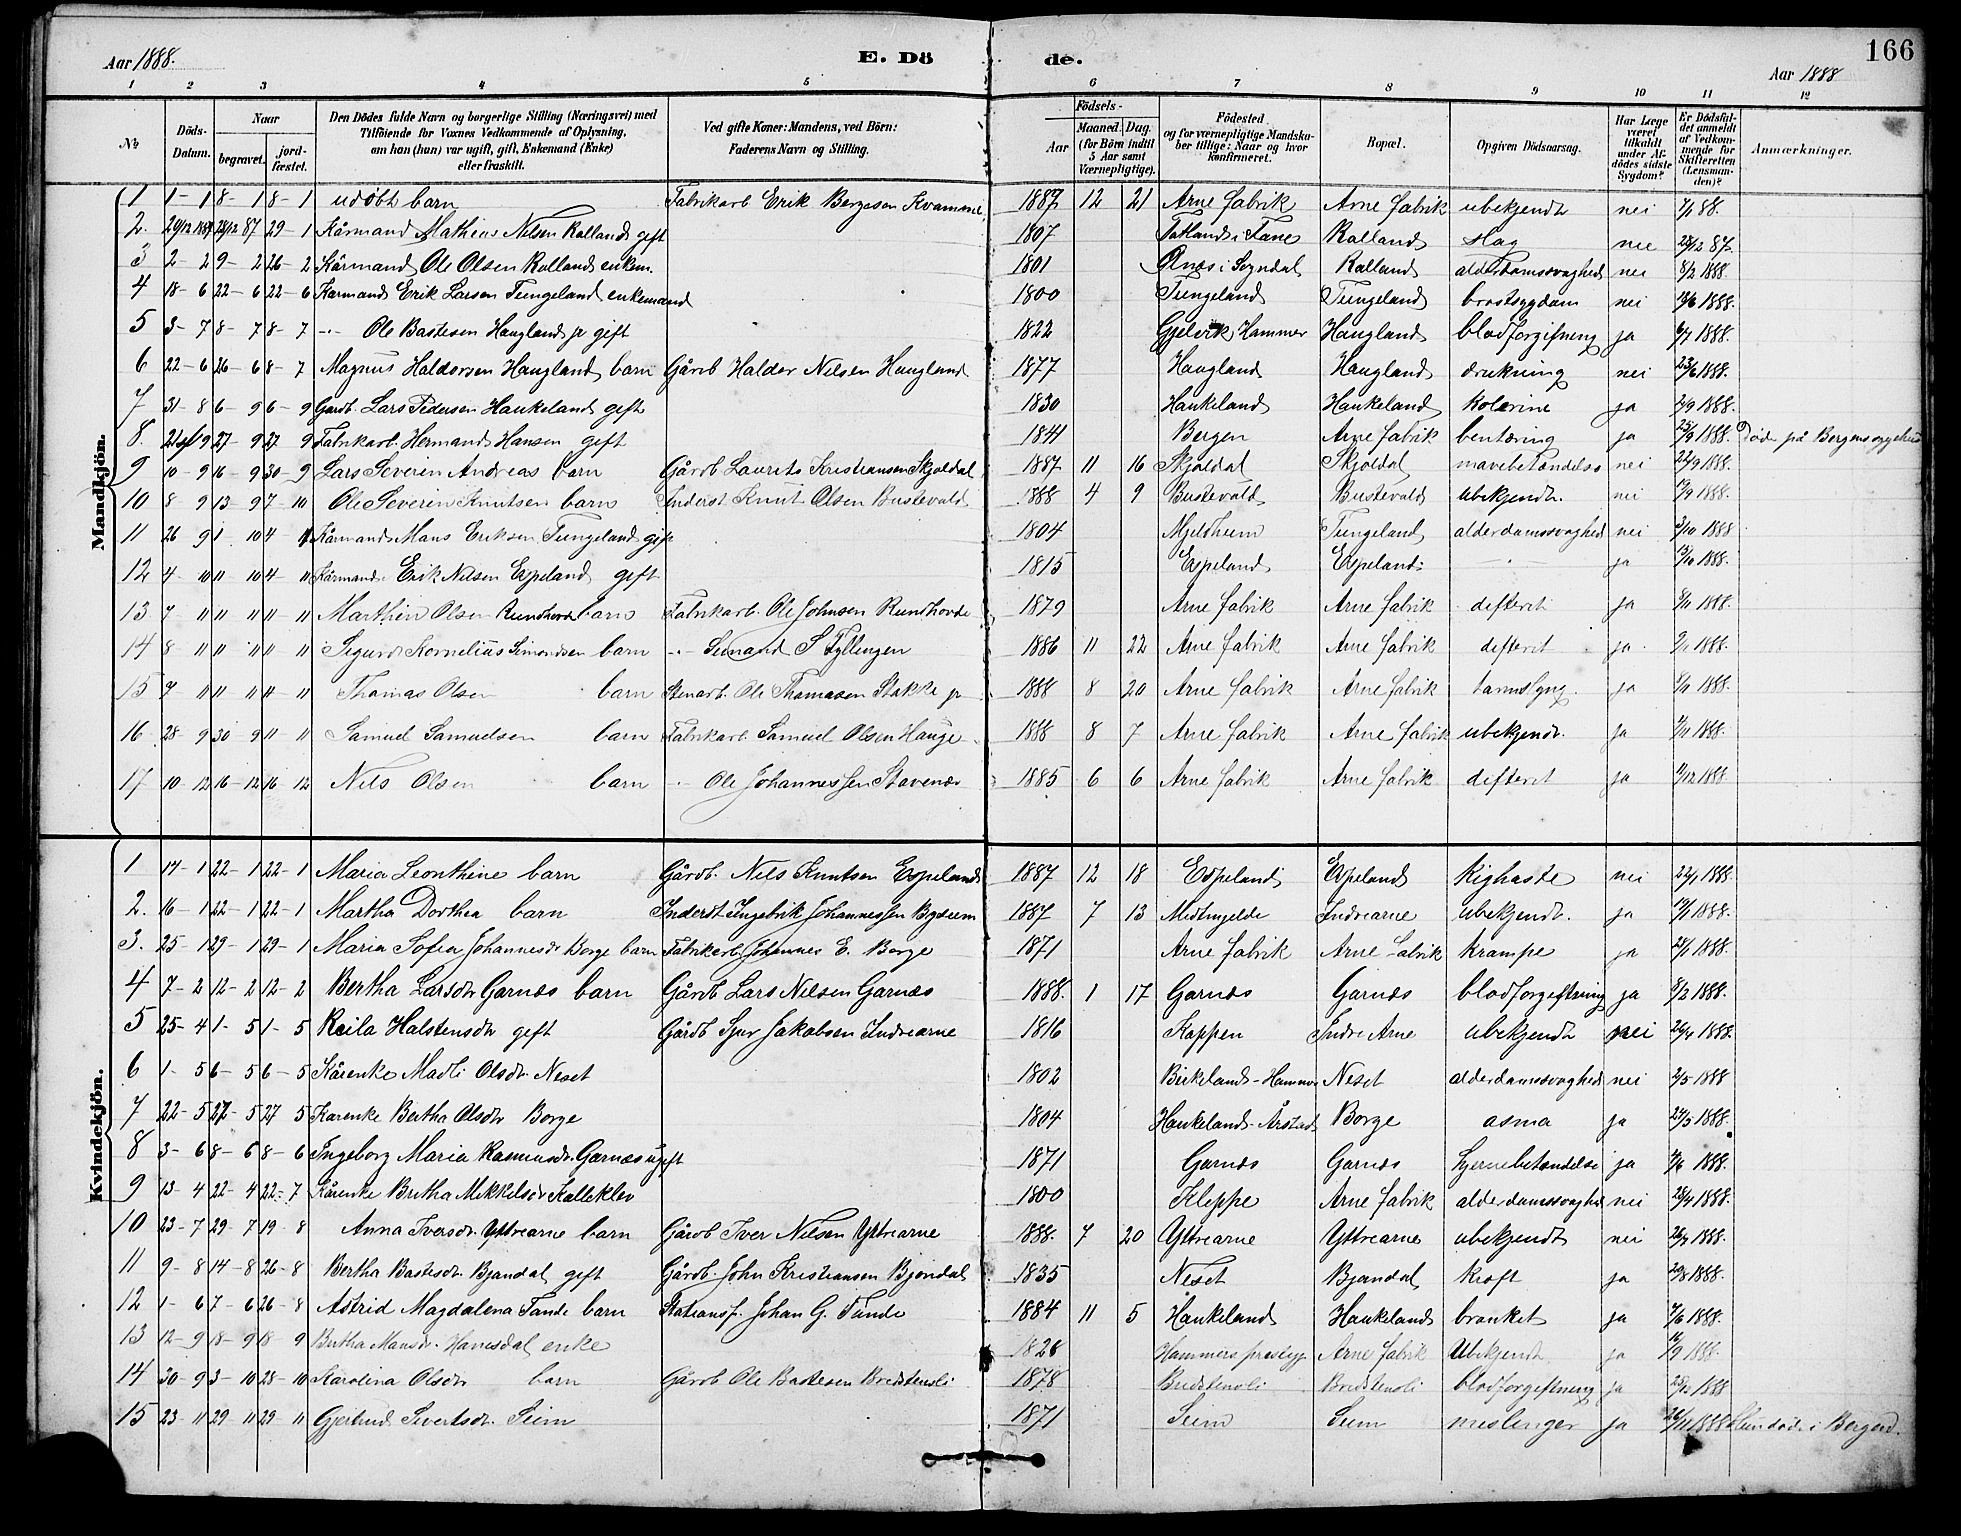 166
Aar 1888. E. Dö de. Aar 1888
1 2 3 4 5 6 7 8 9 10 11 12
№ Döds-Datum. Naar begravet. jordfæstet. Den Dödes fulde Navn og borgerlige Stilling (Næringsvei) med Tilföiende for Voxnes Vedkommende af Oplysning, om han (hun) var ugift, gift, Enkemand (Enke) eller fraskilt. Ved gifte Koner: Mandens, ved Börn: Faderens Navn og Stilling. Födsels- Aar Maaned. Dag. (for Börn indtil 5 Aar samt Værnepligtige). Födested og for værnepligtige Mandskaber tillige: Naar og hvor konfirmeret. Bopæl. Opgiven Dödsaarsag. Har Læge været tilkaldt under Afdödes sidste Sygdom? Er Dödsfaldet anmeldt af Vedkommende for Skifteretten (Lensmanden)? Anmærkninger.
Mandkjön.
1 1-1 8-1 8-1 udøbt barn Fabrikarb Erik Bergeson Kvamme 1887 12 21 Arne fabrik Arne fabrik ubekjendt nei 7/1 88.
2. 24/12 1887 28/12 87 29-1 Kårmand Mathias Nilsen Kalland gift 1807 Tatland i Fane Kalland slag nei 28/12 87.
3 2-2 9-2 26-2 Kårmand Ole Olsen Kalland enkem. 1801 Ønæs i Sogndal Kalland alderdomssvaghed nei 8/2 1888.
4 18-6 22-6 22-6 Kårmand Erik Larsen Tungeland enkemand 1800 Tungeland Tungeland brystsygdom nei 19/6 1888.
5 3-7 8-7 8-7 -"- Ole Bastesen Haugland gift 1822 Gjelvik Hammer Haugland blodforgifning ja 6/7 1888.
6 22-6 26-6 8-7 Magnus Haldorsen Haugland barn Gårdb Haldor Nilsen Haugland 1877 Haugland Haugland drukning nei 23/6 1888.
7 31-8 6-9 6-9 Gardb. Lars Pedersen Haukeland gift 1830 Haukeland Haukeland kolerine ja 2/9 1888.
8. 21/9 27-9 27-9 Fabrikarb. Hermand Hansen gift 1841 Bergen Arne fabrik bentæring ja 25/9 1888. Døde på Bergens sygehus
9 10-9 16-9 30-9 Lars Severin Andreas barn Gårdb Laurits Kristiansen Skjoldal 1887 11 16 Skjoldal Skjoldal mavebetændelse nei 22/9 1888.
10 8 9 13-9 7-10 Ole Severin Knutsen barn Inderst Knut Olsen Bustevold 1888 4 9 Bustevold Bustevold ubekjendt. nei 13/9 1888.
11 26 9 1-10 4-11 Kårmand Mons Eriksen Tungeland gift 1804 Mjeldheim Tungeland alderdomssvaghed nei 3/10 1888
12 4-10 11-10 4-11 Kårmand. Erik Nilsen Espeland gift 1815 Espeland Espeland -"- ja 13/10 1888.
13 7 " " " " " Marthin Olsen Rundhovde barn Fabrikarb. Ole Johnsen Rundhovde 1879 Arne fabrik Arne fabrik difterit ja 8/11 1888.
14 8 " " " " " Sigurd Kornelius Simondsen barn -"- Simand S Fyllingen 1886 11 22 Arne fabrik Arne fabrik difterit ja 9/11 1888.
15 7 " " " " " Thomas Olsen barn Stenarb. Ole Thomasen Stokke 1888 8 20 Arne fabrik Arne fabrik ja 8/11 1888.
16 28-9 30-9 11-11 Samuel Samuelsen barn Fabrikarb. Samuel Olsen Hauge 1888 8 7 Arne fabrik Arne fabrik ubekjendt. ja 1888.
17 10-12 16-12 16-12 Nils Olsen barn -"- Ole Johannessen Stavenæs 1885 6 6 Arne fabrik Arne fabrik difterit ja 11/12 1888
Kvindekjön.
1 14-1 22-1 22-1 Maria Leonthine barn Gårdb. Nils Knutsen Espeland 1887 12 18 Espeland Espeland kighoste nei 22/1 1888.
2. 16-1 22-1 22-1 Martha Dorthea barn Inderst Ingebrik Johannessen Bysem 1887 7 13 Midtingelde Indrearne ubekjendt. ja 17/1 1888.
3. 25-1 29-1 29-1 Maria Sofia Johannesdr Borge barn Fabrikarb. Johannes E. Borge 1871 Arne fabrik Arne fabrik krampe ja 27/1 1888.
4 7-2 12-2 12-2 Bertha Larsdtr Garnæs barn Gårdb Lars Nilsen Garnæs 1888. 1 17 Garnæs Garnæs blodforgiftning ja 8/2 1888.
5 25-4 1-5 1-5 Keila Halstensdtr gift Gårdb Sjur Jakobsen Indrearne 1816 Koppen Indre Arne ubekjendt nei 26/4 1888.
6 1-5 6-5 6-5 Kårenke Madli Olsdtr Neset 1802 Birkeland - Hammer Neset alderdomssvaghed nei 2/5 1888
7 22-5 27-5 27 5 Karenke Bertha Olsdtr Borge 1804 Haukeland - Årstad Borge asma ja 24/5 1888.
8 3-6 8-6 8-6 Ingeborg Maria Rasmusdr. Garnæs ugift 1871 Garnæs Garnæs hjernebetændelse ja 4/6 1888.
9 13-4 22-4 22-7 Kårenke Britha Mikkelsdr Kalleklev 1800 Kleppe Arne fabrik alderdomssvaghed nei 28/4 1888.
10 23-7 29-7 19-8 Anna Iversdr. Yttrearne barn Gårdb Iver Nilsen Yttrearne 1888. 7 20 Yttrearne Yttrearne ubekjendt nei 26/7 1888.
11 9-8 14-8 26-8 Bertha Bastesdtr Bjøndal gift Gårdb. John Kristiansen Bjøndal 1835 Neset Bjøndal kræft ja 20/8 1888.
12 1-6 7-6 26-8 Astrid Magdalena Tande barn Stationsf. Johan G. Tande 1884 11 5 Haukeland Haukeland bronket ja 7/6 1888.
13 12-9 18-9 18 9 Bertha Mansdr. Hanesdal enke 1826 Hammers præstegj Arne fabrik Ubekjendt ja 16/9 1888.
14 30-9 3-10 28-10 Karolina Olsdtr barn Gårdb Ole Bastesen Bredstensli 1878 Bredstensli Bredstensli blodforgiftning ja 1888
15 23-11 29-11 29-11 Gjertrud Sivertsdr. Seim 1871 Seim Seim meslinger ja 26/11 1888 Hun døde i Bergen.